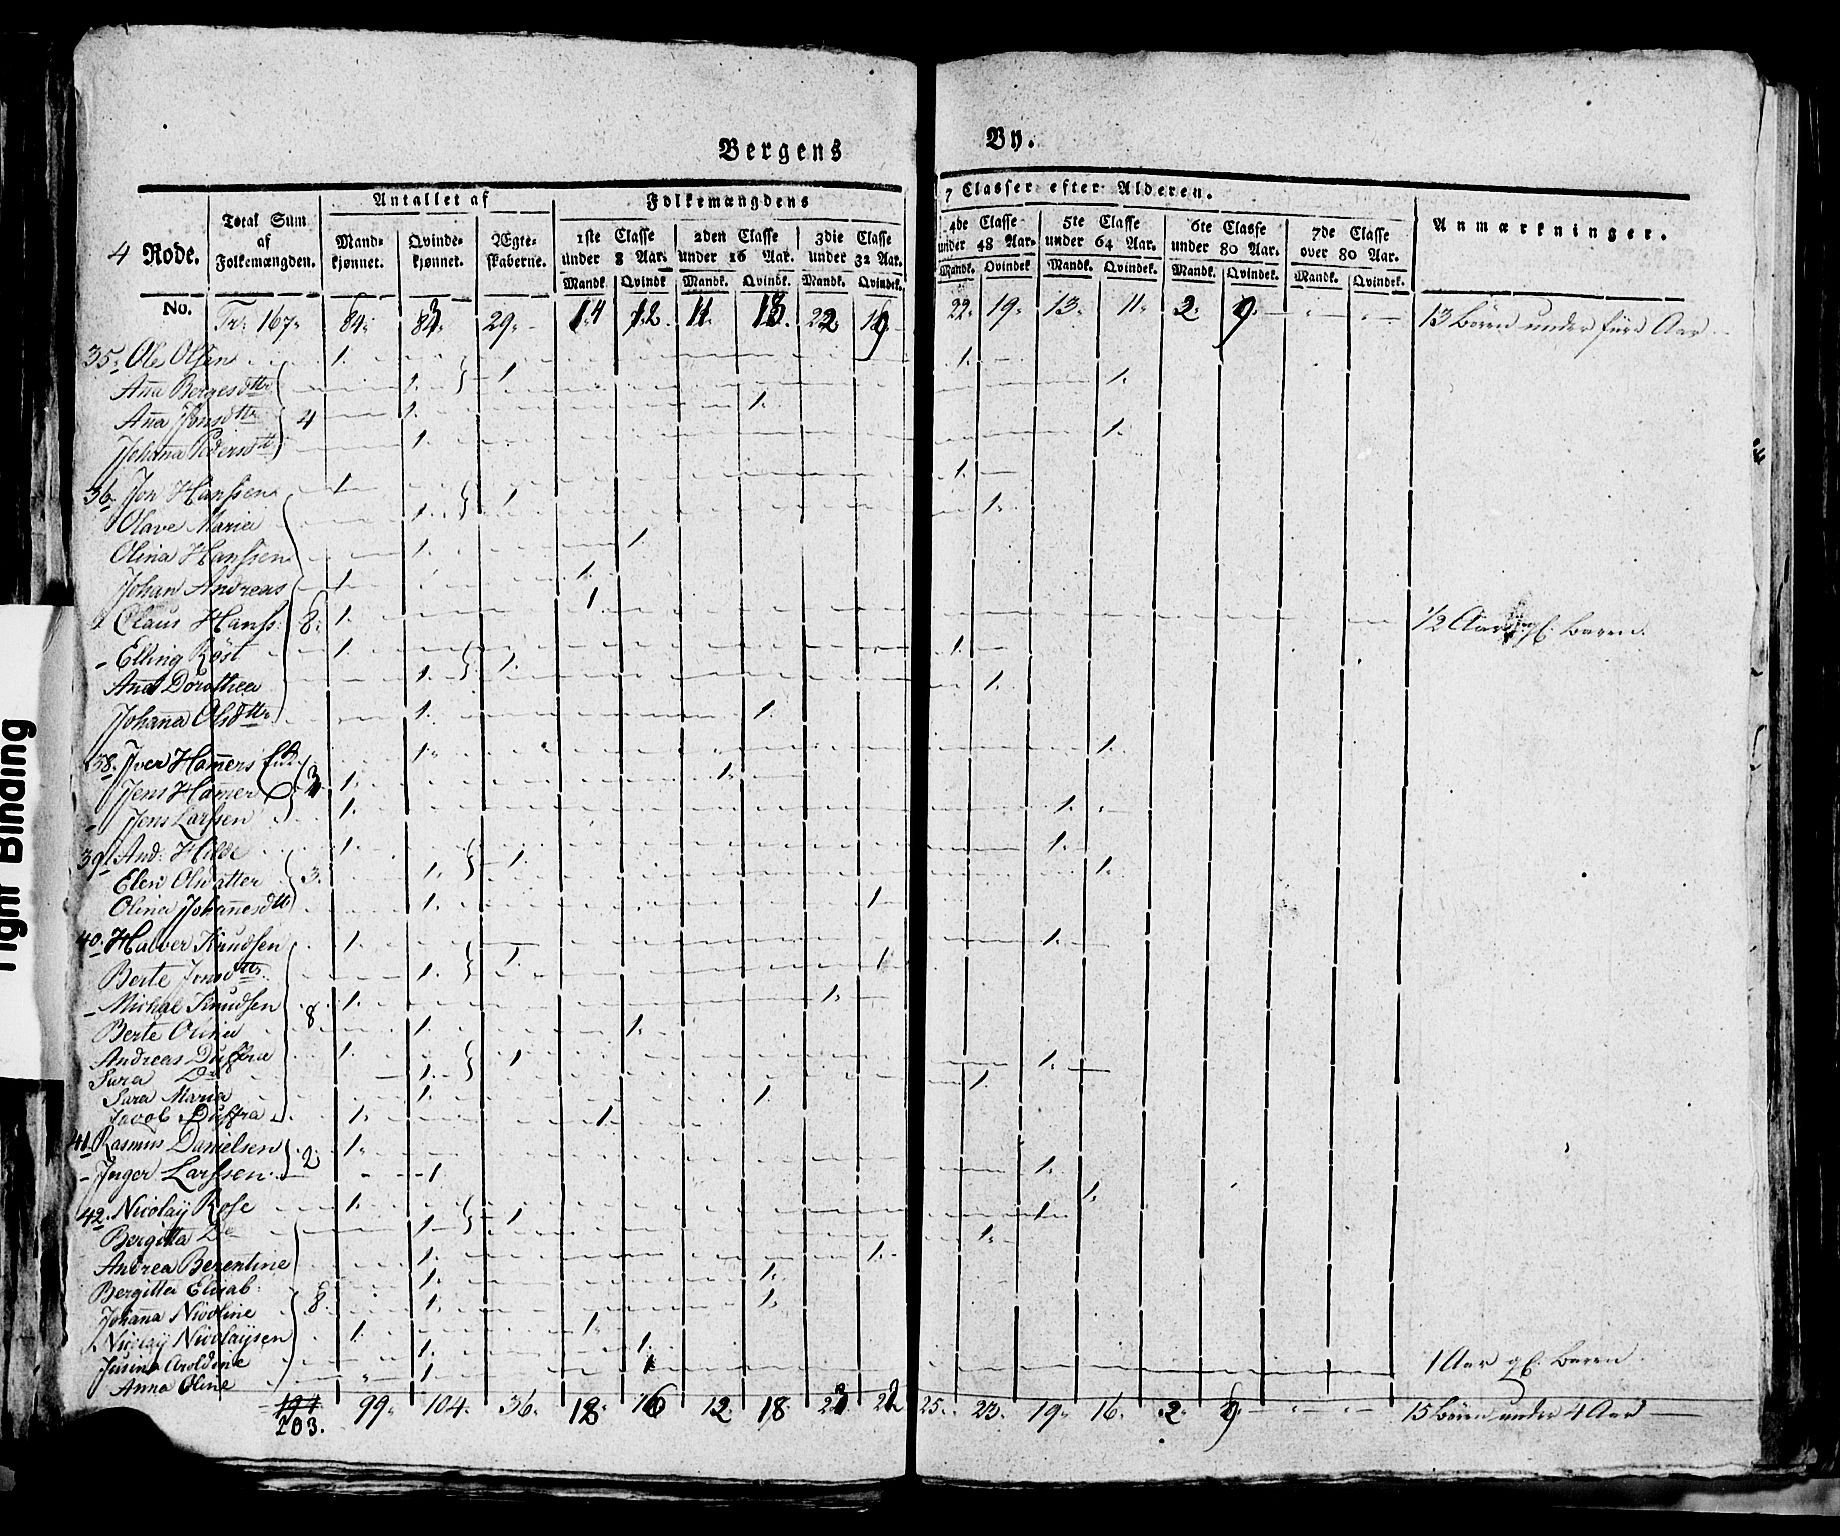 Bergens By.
4 Rode.
Total Sum af Folkemængden.
Antallet af
Mandkjønnet. Qvindekjønnet. Ægteskaberne.
Folkemængdens 7 Classer efter Alderen.
1ste Classe under 8 Aar. 2den Classe under 16 Aar. 3die Classe under 32 Aar. 4de Classe under 48 Aar. 5te Classe under 64 Aar. 6te Classe under 80 Aar. 7de Classe over 80 Aar.
Mandk. Qvindk. Mandk. Qvindk. Mandk. Qvindk. Mandk. Qvindek. Mandk. Qvindek. Mandk. Qvindek. Mandk. Qvindek.
Anmærkninger.
No.
Tr: 167. 84. 29. 14 12. 11. 13. 22. 22. 19. 13. 11. 2. 9. 13 Børn under fire Aar
35. Ole Olsen 1. 1.
Aña Bergesdttr 1. 1 1.
Aña Jonsdttr 4 1. 1.
Johaña Pedersdtt 1. 1.
36. Jon Hanssen 1. 1.
Olave Maria 1. 1. 1.
Olina Hanssen 1. 1.
Johan Andreas 1. 1.
Claus Hanss: 8. 1. 1 1/2 Aar gl. Barn.
- Elling Röst 1. 1.
Ana Dorothea 1. 1. 1.
Johaña Olsdttr 1. 1.
38. Iver Hamers 1. 1.
Jens Hamer 3 1. 1.
- Jens Larssen 1. 1.
39. And: Hilde 1. 1.
Elen Olsdatter 3. 1. 1. 1.
Olina Johañesdtt 1. 1
40. Halver Knudsen 1. 1.
Berte Jonsdttr. 1. 1. 1
- Michal Knudsen 8 1. 1.
Berte Olina 1. 1.
Andreas Duffra 1. 1 1.
Sara Do 1. 1.
Sara Maria 1. 1.
Jacob Duffra 1. 1.
41. Rasmus Danielsen 2. 1. 1.
- Inger Larssen 1 1.
42. Nicolaÿ Rose 1. 1.
Bergitta De 1. 1 1.
Andrea Berentine 1. 1.
Bergitta Elisab: 8. 1. 1.
Johaña Nicoline 1. 1.
Nicolaÿ Nicolaÿsen 1. 1.
Jusina Aroldine 1. 1.
Anna Oline 1. 1 1 Aar gl. Barn
203. 99. 104. 36. 18. 16 12 18. 23 22 25. 23. 19. 16. 2. 9. 15 Børn under 4 Aar
Tight Binding